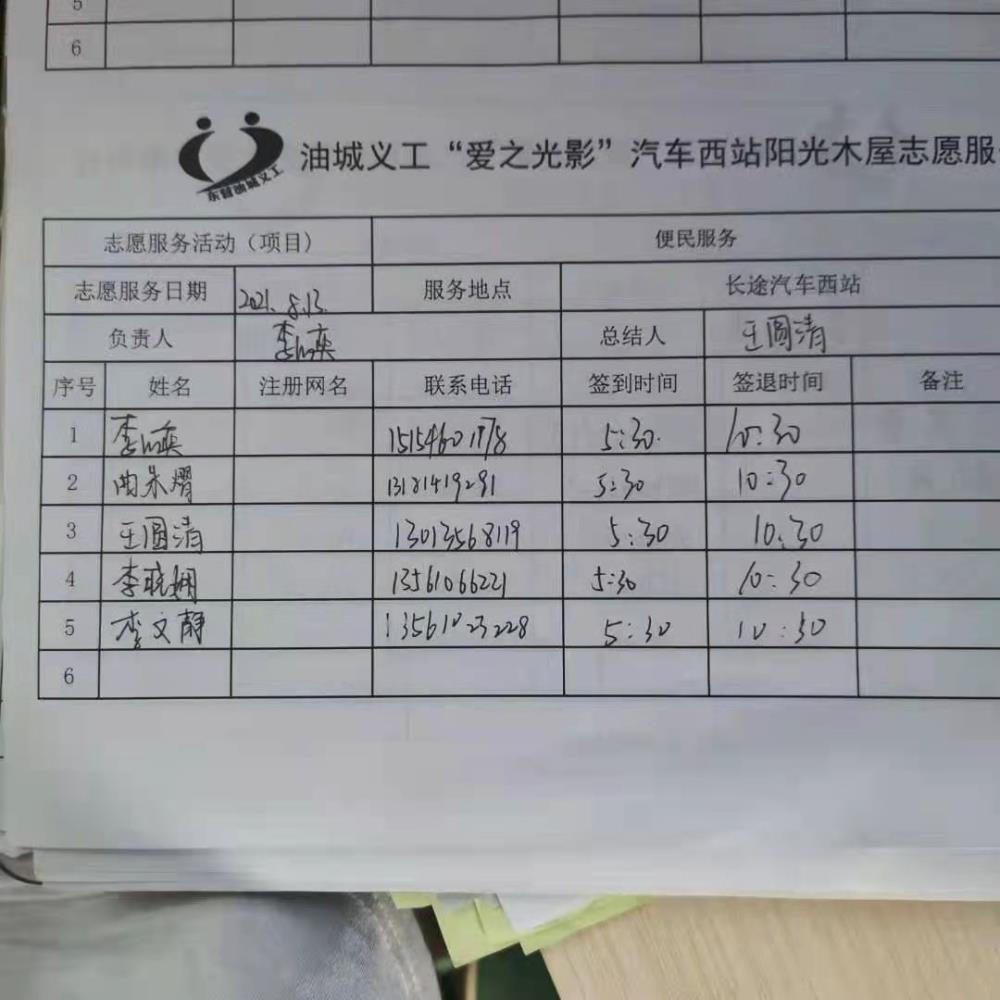 5
6
东营油城义工
油城义工“爱之光影”汽车西站阳光木屋志愿服
志愿服务活动（项目） 便民服务
志愿服务日期 2021.8.13. 服务地点 长途汽车西站
负责人 李 总结人 王圆清
序号 姓名 注册网名 联系电话 签到时间 签退时间 备注
1 李 5:30. 10:30
2 曲 13181419291 5:30 10:30
3 王圆清 13013568119 5:30 10:30
4 李晓娴 13561066221 5:30 10:30
5 李文静 13561023228 5:30 10:30
6